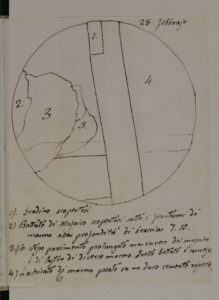 28 febbrajo
1.
2.
3
3.
4.
1) Gradino scopertosi
2) Battuto di Mosaico scopertosi sotto i frantumi di
marmo alla profondità di braccia 7. 10.
3) Lo stesso pavimento prolungato mai in verso del mosaico
di lastre di diverso marmo, questo battuto è
4) Lastricato di marmo posato su un duro cemento